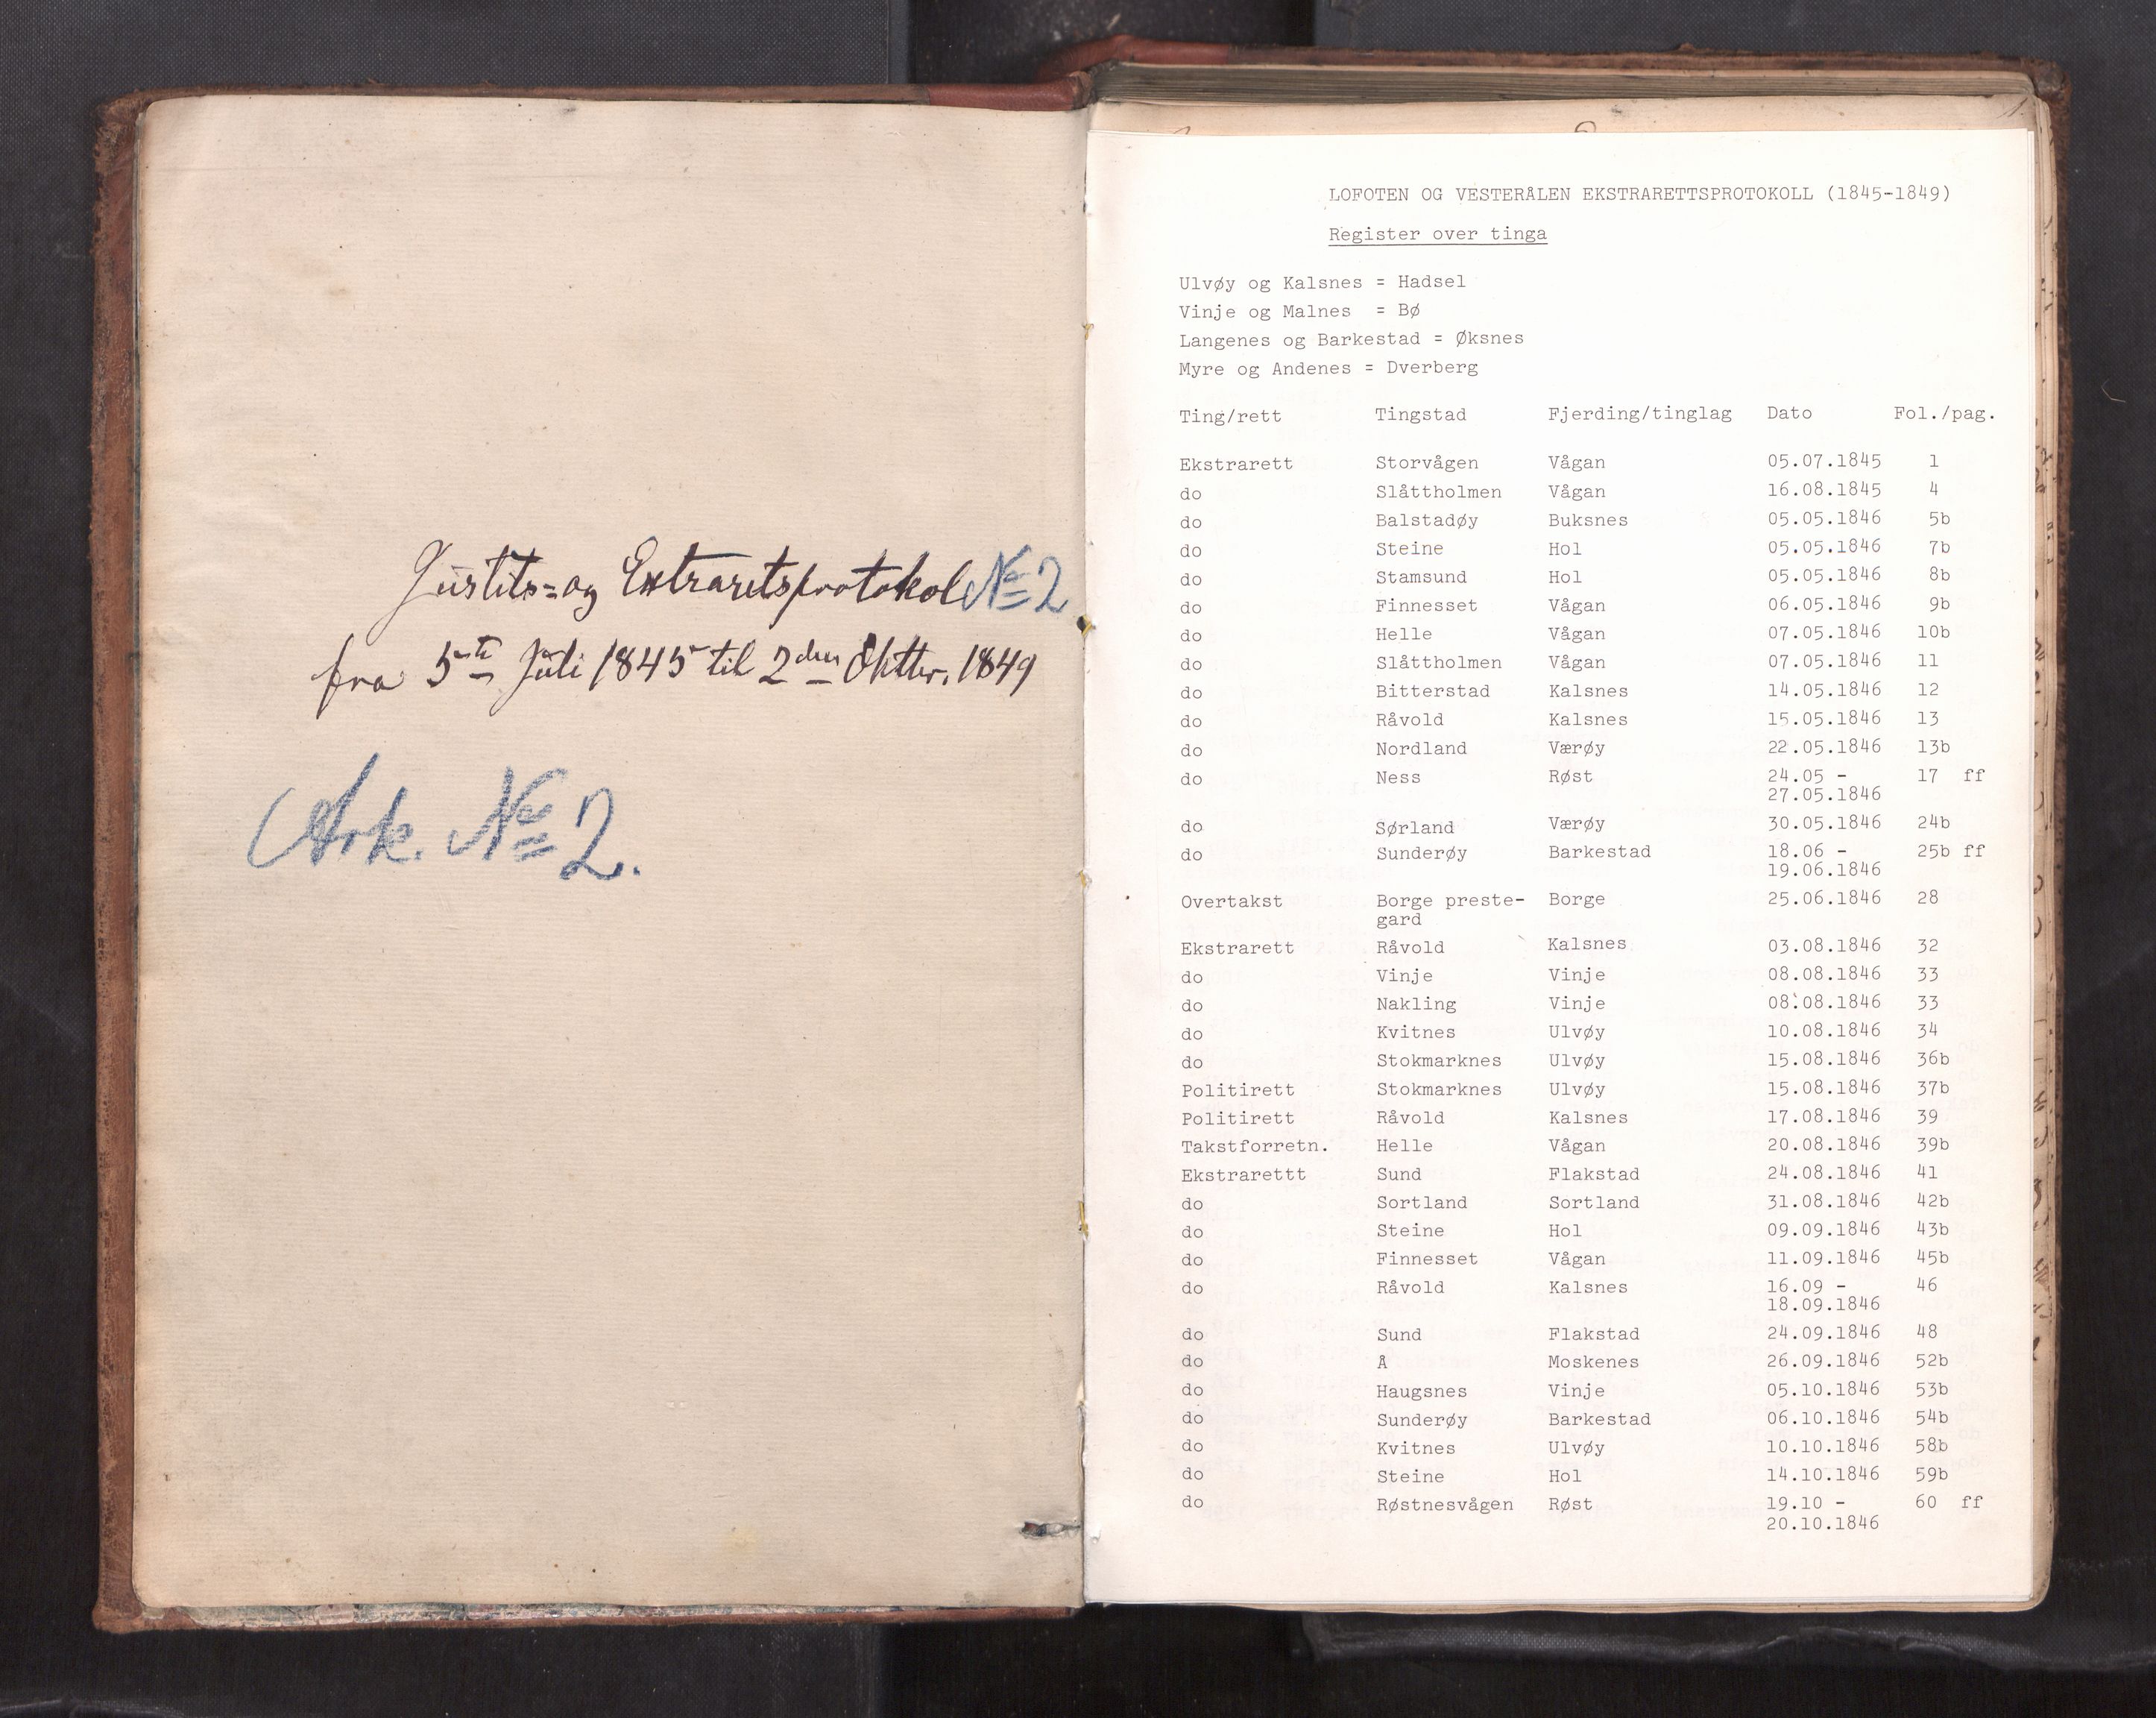 Justits= og Extraretsprotokol № 2
fra 5te Juli 1845 til 2den Oktbr. 1849
Ark. № 2.
LOFOTEN OG VESTERÅLEN EKSTRARETTSPROTOKOLL (1845-1849)
Register over tinga
Ulvøy og Kalsnes = Hadsel
Vinje og Malnes = Bø
Langenes og Barkestad = Øksnes
Myre og Andenes = Dverberg
Ting/rett Tingstad Fjerding/tinglag Dato Fol./pag.
Ekstrarett Storvågen Vågan 05.07.1845 1
do Slåttholmen Vågan 16.08.1845 4
do Balstadøy Buksnes 05.05.1846 5b
do Steine Hol 05.05.1846 7b
do Stamsund Hol 05.05.1846 8b
do Finnesset Vågan 06.05.1846 9b
do Helle Vågan 07.05.1846 10b
do Slåttholmen Vågan 07.05.1846 11
do Bitterstad Kalsnes 14.05.1846 12
do Råvold Kalsnes 15.05.1846 13
do Nordland Værøy 22.05.1846 13b
do Ness Røst 24.05 - 17 ff
27.05.1846
do Sørland Værøy 30.05.1846 24b
do Sunderøy Barkestad 18.06 - 25b ff
19.06.1846
Overtakst Borge preste- Borge 25.06.1846 28
gard
Ekstrarett Råvold Kalsnes 03.08.1846 32
do Vinje Vinje 08.08.1846 33
do Nakling Vinje 08.08.1846 33
do Kvitnes Ulvøy 10.08.1846 34
do Stokmarknes Ulvøy 15.08.1846 36b
Politirett Stokmarknes Ulvøy 15.08.1846 37b
Politirett Råvold Kalsnes 17.08.1846 39
Takstforretn. Helle Vågan 20.08.1846 39b
Ekstrarettt Sund Flakstad 24.08.1846 41
do Sortland Sortland 31.08.1846 42b
do Steine Hol 09.09.1846 43b
do Finnesset Vågan 11.09.1846 45b
do Råvold Kalsnes 16.09 - 46
18.09.1846
do Sund Flakstad 24.09.1846 48
do Å Moskenes 26.09.1846 52b
do Haugsnes Vinje 05.10.1846 53b
do Sunderøy Barkestad 06.10.1846 54b
do Kvitnes Ulvøy 10.10.1846 58b
do Steine Hol 14.10.1846 59b
do Røstnesvågen Røst 19.10 - 60 ff
20.10.1846